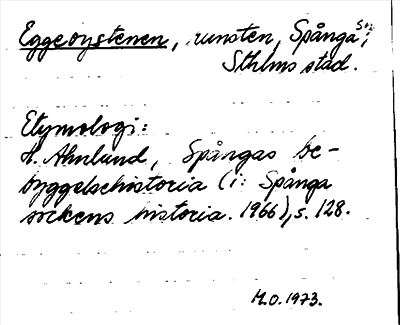 Eggebystenen, runsten, Spånga sn,
Sthlms stad.
Etymologi:
N. Ahnlund, Spångas be-
byggelsehistoria (i: Spånga
sockens historia. 1966), s. 128.
M.O. 1973.